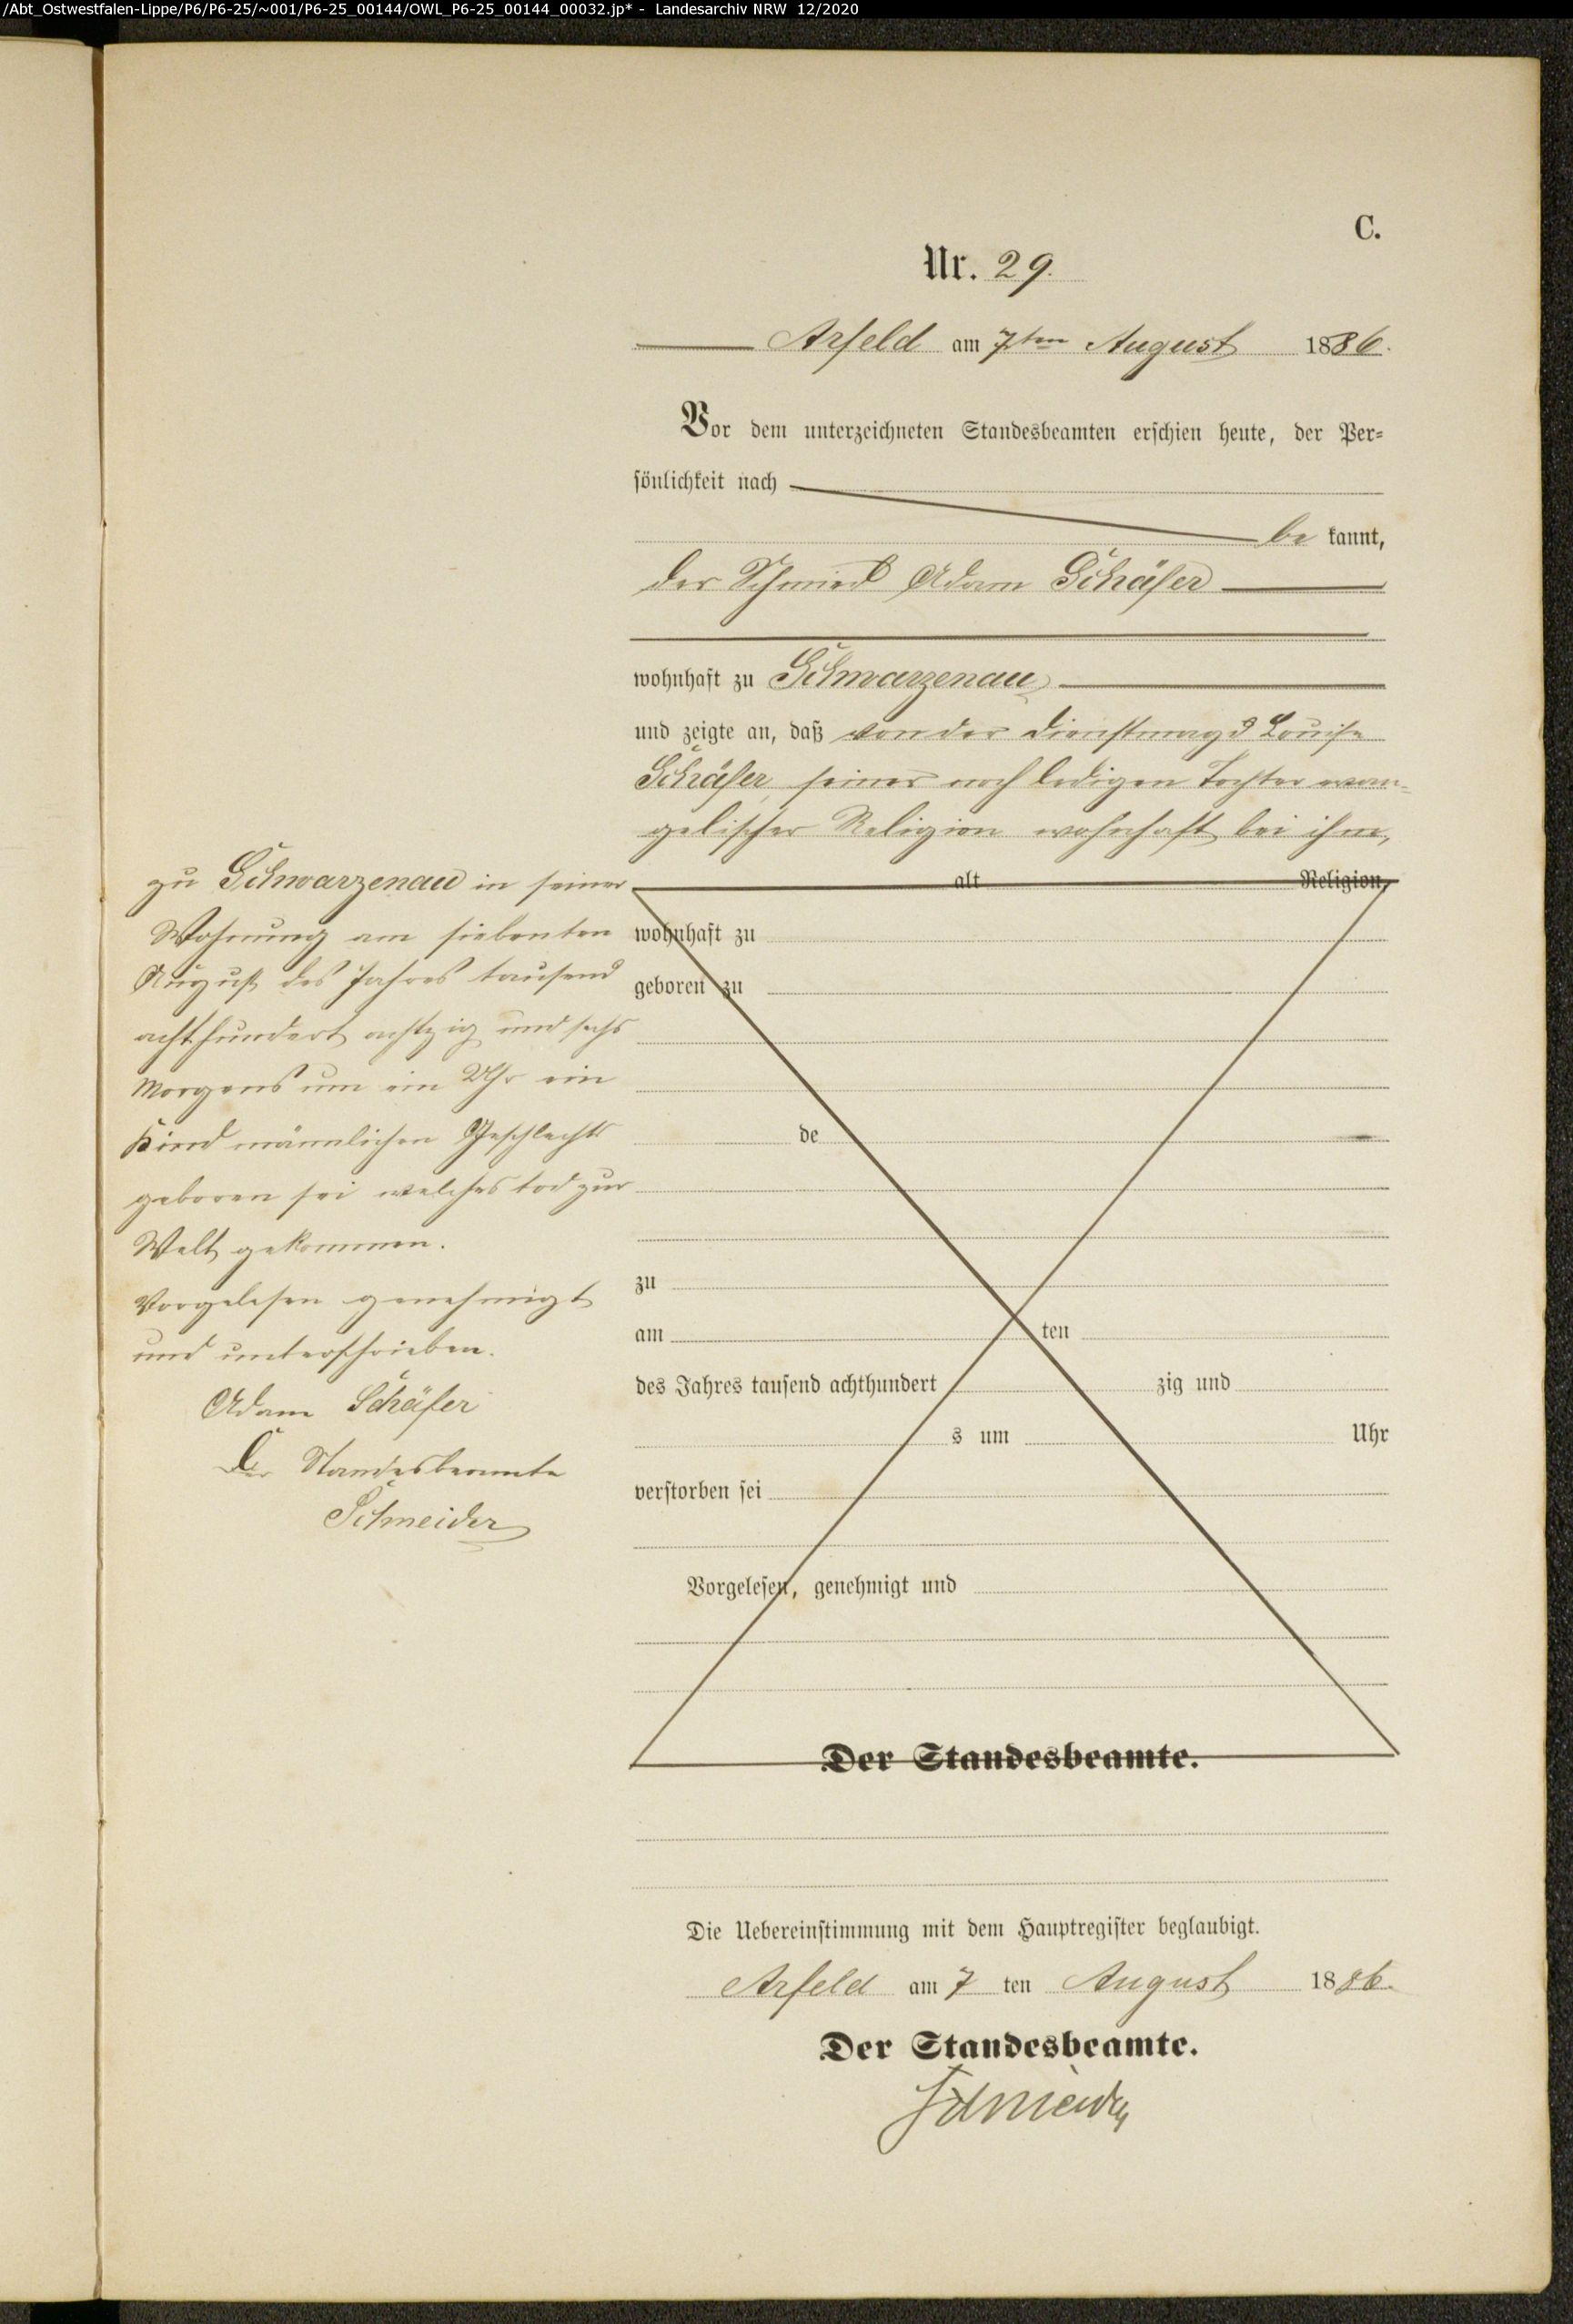 /Abt_Ostwestfalen-Lippe/P6/P6-25/~001/P6-25_00144/OWL_P6-25_00144_00032.jp* - Landesarchiv NRW 12/2020
C.
Nr. 29.
Arfeld am 7ten August 1886.
Vor dem unterzeichneten Standesbeamten erschien heute, der Per-
sönlichkeit nach
be kannt,
der Schmied Adam Schäfer
wohnhaft zu Schwarzenau
und zeigte an, daß von der Dienstmagd Louise
Schäfer, seiner noch ledigen Tochter evan-
gelischer Religion wohnhaft bei ihm,
alt Religion,
wohnhaft zu
geboren zu
de
zu
am ten
des Jahres tausend achthundert zig und
s um Uhr
verstorben sei
Vorgelesen, genehmigt und
Der Standesbeamte.
zu Schwarzenau in seiner
Wohnung am siebenten
August des Jahres tausend
achthundert achtzig und sechs
Morgens um ein Uhr ein
Kind männlichen Geschlechts
geboren sei welches tod zur
Welt gekommen.
Vorgelesen genehmigt
und unterschrieben.
Adam Schäfer
Der Standesbeamte
Schneider
Die Uebereinstimmung mit dem Hauptregister beglaubigt.
Arfeld am 7 ten August 1886.
Der Standesbeamte.
Schneider